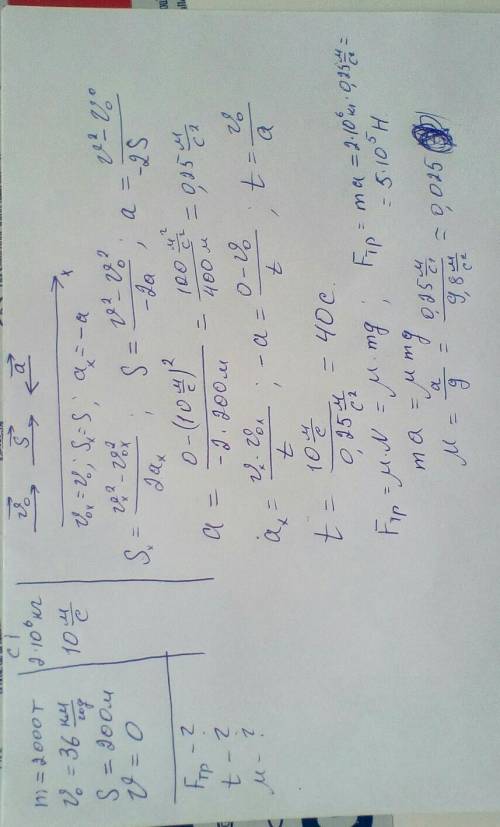 m = 2000т
СІ
2·10⁶кг
v₀ = 36 км/год
10 м/с
S = 200м
v = 0
Fтр - ?
t - ?
μ - ?
v₀ S a
x
v₀ₓ = v₀; Sₓ = S; aₓ = -a
Sₓ = (vₓ² - v₀ₓ²)/2aₓ; S = (v² - v₀²)/-2a; a = (v² - v₀²)/-2S
a = (0 - (10 м/с)²)/(-2·200м) = (100 м²/с²)/400м = 0,25 м/с²
aₓ = (vₓ · v₀ₓ)/t; -a = (0 - v₀)/t; t = v₀/a
t = (10 м/с)/(0,25 м/с²) = 40с.
Fтр = μ·N = μ·mg; Fтр = ma = 2·10⁶кг·0,25 м/с² =
= 5·10⁵Н
ma = μmg
μ = a/g = (0,25 м/с²)/(9,8 м/с²) = 0,025